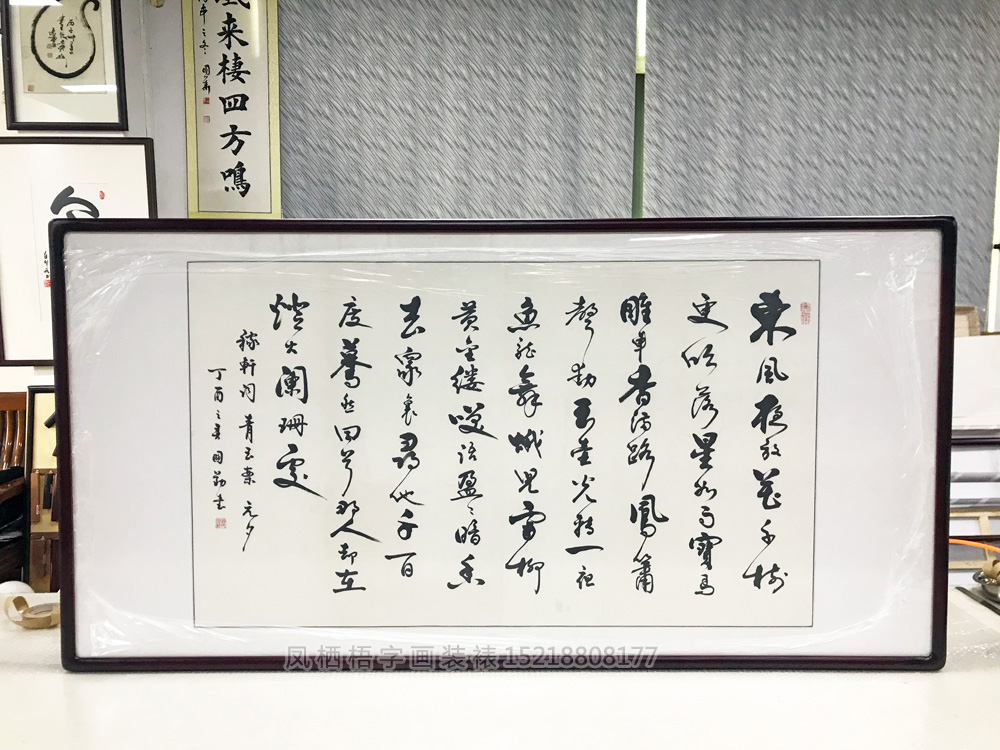 来棲四方鳴
東風夜放花千樹
更吹落星如雨寶馬
雕車香滿路鳳簫
聲動玉壺光轉一夜
魚龍舞蛾兒雪柳
黃金縷咲語盈〻暗香
去衆裏尋他千百
度驀然回首那人却在
燈火闌珊處
稼軒詞 青玉案 元夕
丁酉之夏國勤書
凤栖梧字画装裱15218808177